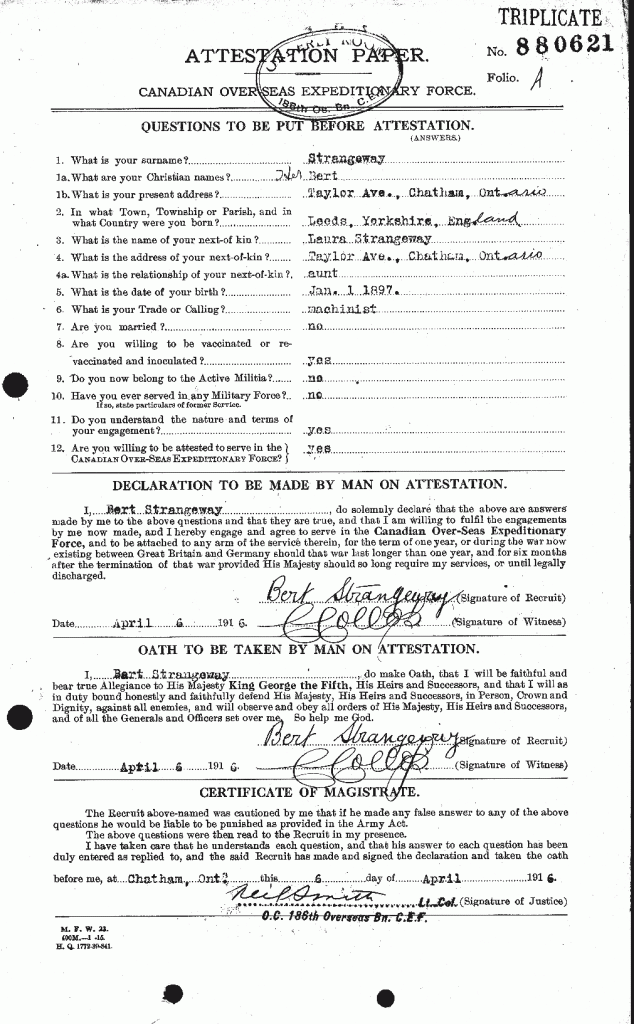 TRIPLICATE
ATTESTATION PAPER.
No. 880621
Folio. A
CANADIAN OVER-SEAS EXPEDITIONARY FORCE.
186th Os. Bn. C.E.F.
QUESTIONS TO BE PUT BEFORE ATTESTATION.
(ANSWERS.)
1. What is your surname? Strangeway
1a. What are your Christian names? Bert
1b. What is your present address? Taylor Ave., Chatham, Ontario
2. In what Town, Township or Parish, and in
what Country were you born? Leeds, Yorkshire, England
3. What is the name of your next-of kin? Laura Strangeway
4. What is the address of your next-of-kin? Taylor Ave., Chatham, Ontario
4a. What is the relationship of your next-of-kin? aunt
5. What is the date of your birth? Jan. 1 1897.
6. What is your Trade or Calling? machinist
7. Are you married? no
8. Are you willing to be vaccinated or re-
vaccinated and inoculated? yes
9. Do you now belong to the Active Militia? no
10. Have you ever served in any Military Force? no
If so, state particulars of former Service.
11. Do you understand the nature and terms of
your engagement? yes
12. Are you willing to be attested to serve in the } yes
CANADIAN OVER-SEAS EXPEDITIONARY FORCE? }
DECLARATION TO BE MADE BY MAN ON ATTESTATION.
I, Bert Strangeway, do solemnly declare that the above are answers
made by me to the above questions and that they are true, and that I am willing to fulfil the engagements
by me now made, and I hereby engage and agree to serve in the Canadian Over-Seas Expeditionary
Force, and to be attached to any arm of the service therein, for the term of one year, or during the war now
existing between Great Britain and Germany should that war last longer than one year, and for six months
after the termination of that war provided His Majesty should so long require my services, or until legally
discharged.
Bert Strangeway (Signature of Recruit)
Date April 6 1916. (Signature of Witness)
OATH TO BE TAKEN BY MAN ON ATTESTATION.
I, Bert Strangeway, do make Oath, that I will be faithful and
bear true Allegiance to His Majesty King George the Fifth, His Heirs and Successors, and that I will as
in duty bound honestly and faithfully defend His Majesty, His Heirs and Successors, in Person, Crown and
Dignity, against all enemies, and will observe and obey all orders of His Majesty, His Heirs and Successors,
and of all the Generals and Officers set over me. So help me God.
Bert Strangeway (Signature of Recruit)
Date April 6 1916. (Signature of Witness)
CERTIFICATE OF MAGISTRATE.
The Recruit above-named was cautioned by me that if he made any false answer to any of the above
questions he would be liable to be punished as provided in the Army Act.
The above questions were then read to the Recruit in my presence.
I have taken care that he understands each question, and that his answer to each question has been
duly entered as replied to, and the said Recruit has made and signed the declaration and taken the oath
before me, at Chatham, Ont. this 6 day of April 1916.
Neil Smith Lt. Col. (Signature of Justice)
O.C. 186th Overseas Bn. C.E.F.
M. F. W. 23.
H. Q. 1772-39-841.